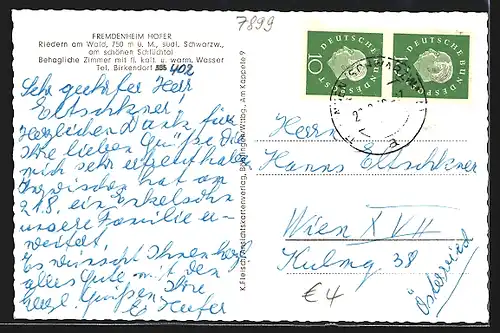 7899
FREMDENHEIM HOFER
Riedern am Wald, 750 m ü. M., südl. Schwarzw.,
am schönen Schlüchtal
Behagliche Zimmer mit fl. kalt. u. warm. Wasser
Tel. Birkendorf 402
Sehr geehrter Herr
Eltschkner!
Herzlichen Dank für
Ihre lieben Grüße, die
mich sehr erfreut haben
Inzwischen hat am
21.8. ein Enkelsohn
unsere Familie er-
weitert.
Es wünscht Ihnen
alles Gute mit den
herzl. Grüßen Ihre
K. Fleisch, Ansichtskartenverlag, Am Kappele 9
DEUTSCHE BUNDESPOST
10
DEUTSCHE BUNDESPOST
a
Herrn
Hanns Eltschkner
Wien XVII
Kulmg 38
Österreich
€ 4